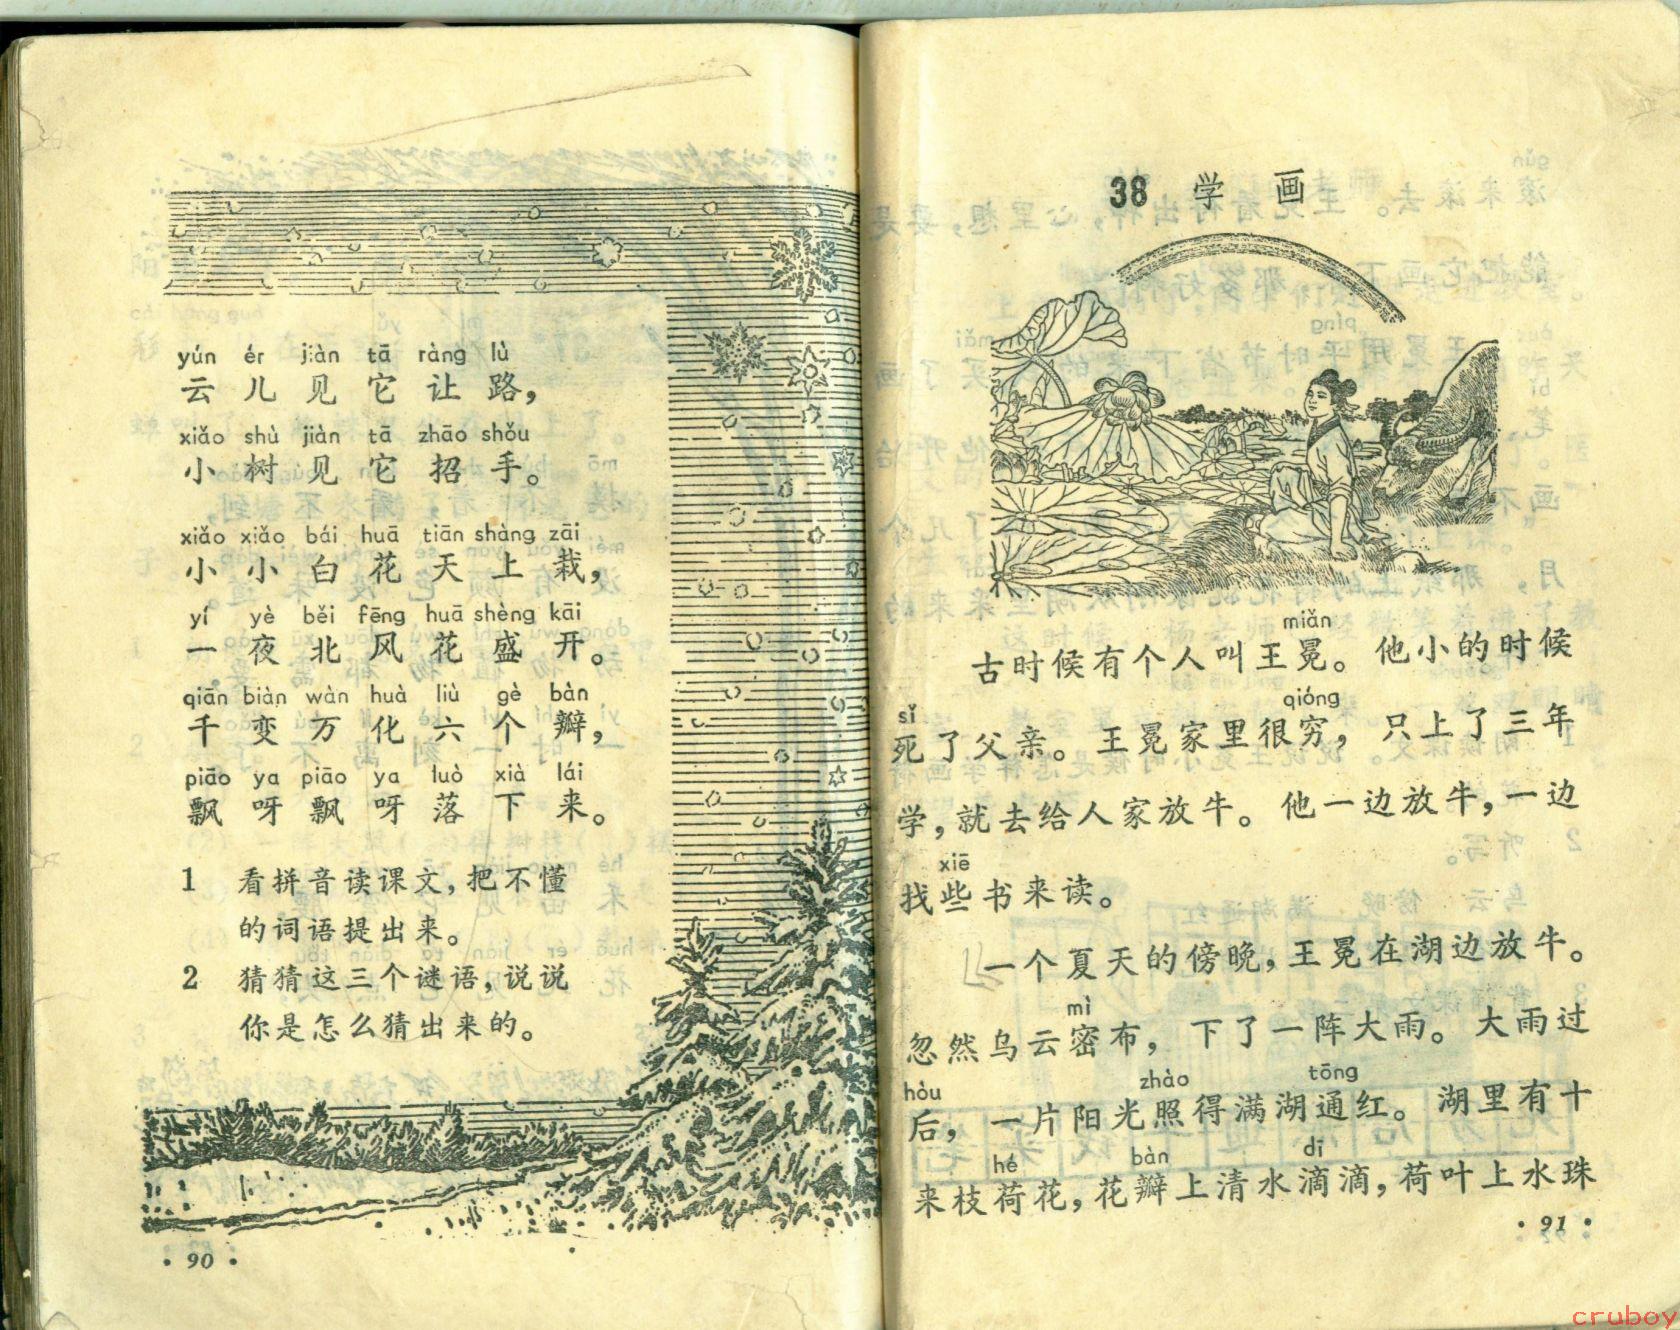 yún ér jiàn tā ràng lù
云儿见它让路，
xiǎo shù jiàn tā zhāo shǒu
小树见它招手。
xiǎo xiǎo bái huā tiān shàng zāi
小小白花天上栽，
yí yè běi fēng huā shèng kāi
一夜北风花盛开。
qiān biàn wàn huà liù gè bàn
千变万化六个瓣，
piāo ya piāo ya luò xià lái
飘呀飘呀落下来。
1 看拼音读课文，把不懂
的词语提出来。
2 猜猜这三个谜语，说说
你是怎么猜出来的。
· 90 ·
38 学画
miǎn
古时候有个人叫王冕。他小的时候
sǐ qióng
死了父亲。王冕家里很穷，只上了三年
学，就去给人家放牛。他一边放牛，一边
xiē
找些书来读。
一个夏天的傍晚，王冕在湖边放牛。
mì
忽然乌云密布，下了一阵大雨。大雨过
hòu zhào tōng
后，一片阳光照得满湖通红。湖里有十
hé bàn dī
来枝荷花，花瓣上清水滴滴，荷叶上水珠
· 91 ·
cruboy